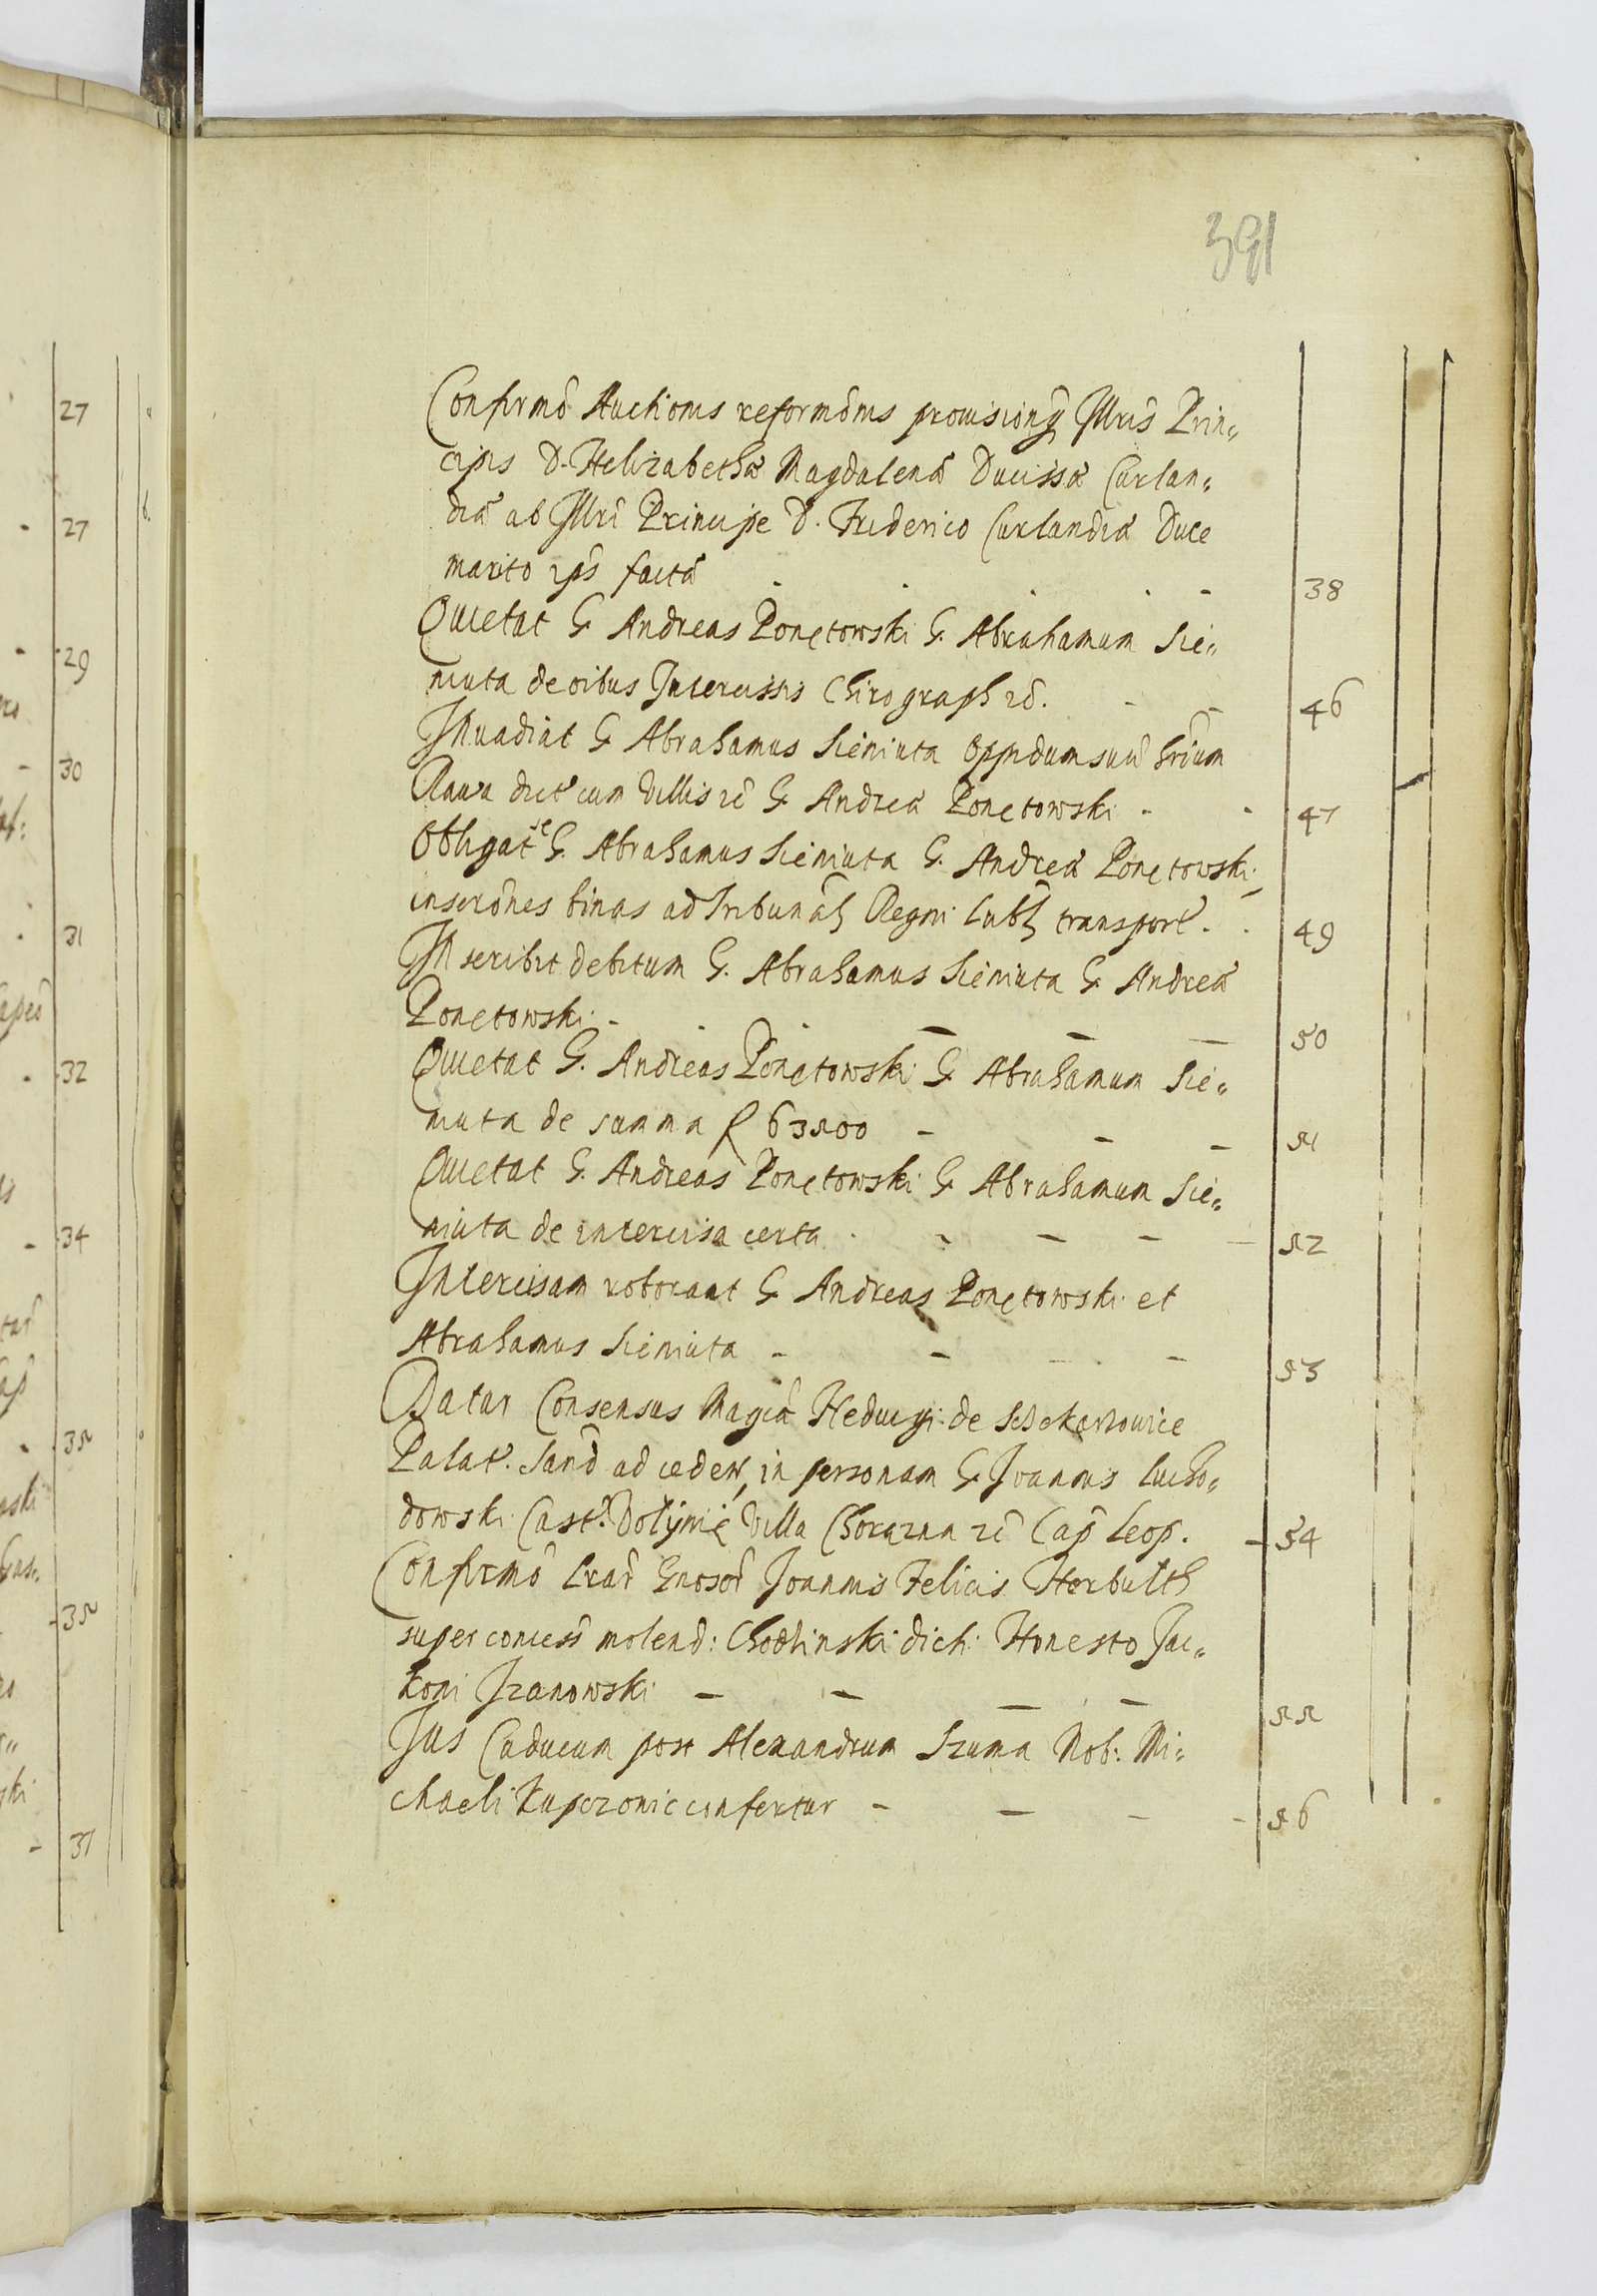 391
Confirmõ Auctionis reformõnis provisionq Illris Prin„
cipis D. Helizabethæ Magdalenæ Ducissæ Curlan„
diæ ab Illri Principe D. Friderico Curlandiæ Duce
marito ips factæ - - - - - 38
Quietat G. Andreas Ponętowski G. Abrahamum Sie„
niuta de oibus Intercissis Chirograph
46
Inuadiat G. Abrahamus Sieniuta Oppidum suũ hrdium
Rawa dict cum Villis rc̃ G. Andreæ Ponętowski - - 47
Obligat se G. Abrahamus Sieniuta G. Andreæ Ponętowski
inscrõnes binas ad Tribunal Regni Lubl transport. . 49
Inscribit debitum G. Abrahamus Sieniuta G. Andreæ
Ponętowski - - - - - - 50
Quietat G. Andreas Ponętowski G. Abrahamum Sie„
niuta de summa f 63500 - - - 51
Quietat G. Andreas Ponętowski G. Abrahamum Sie„
niuta de intercisa certa . - - - - 52
Intercisam roborant G. Andreas Ponętowski et
Abrahamus Sieniuta - - - - 53
Datur Consensus Magcæ Heduigi de
Palat. Sand ad ceden, in personam G. Joannis Lucho„
dowski Cast. Volynię Villa Chorazna rc̃ Cap Leop. - 54
Confirmõ Lrar Gnosor Joannis Felicis Herbulth
super concess molend: Chodlinski dicti Honesto Jac„
koni Izanowski - - - - 55
Jus Caducum post Alexandrum Szuma Nob: Mi„
chaeli Kupczonic confertur - - - - 56
27
27
29
30
31
32
34
35
35
37